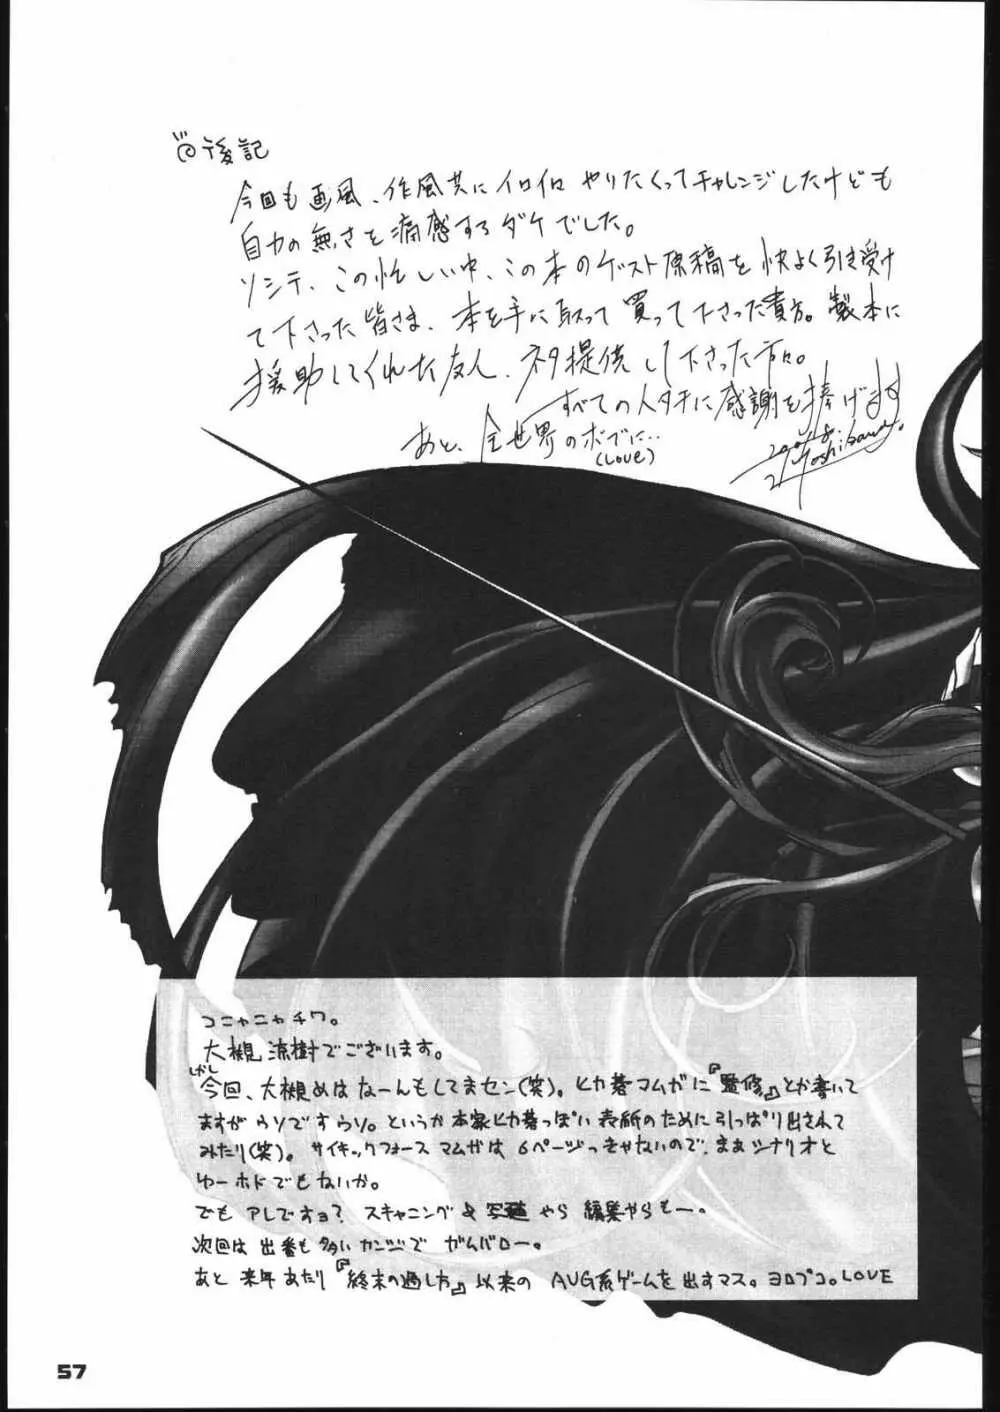 後記
今回も画風、作風共にイロイロやりたくってチャレンジしたけども
自力の無さを痛感するダケでした。
ソシテ、この忙しい中、この本のゲスト原稿を快よく引き受け
て下さった皆さま、本を手に取って買って下さった貴方。製本に
援助してくれた友人、ネタ提供して下さった方々。
すべての人タチに感謝を捧げます
あと、全世界のボブに…
(LOVE)
コニャニャチワ。
大槻涼樹でございます。
今回、大槻めはなーんもしてまセン(笑)。ヒカ碁マムガに『監修』とか書いて
ますがウソですウソ。というか本家ヒカ碁っぽい表紙のために引っぱり出されて
みたり(笑)。サイキックフォースマムガは6ページっきゃないので、まぁシナリオと
ゆーホドでもないか。
でもアレですョ?スキャニング&写植やら編集やらもー。
次回は出番も多いカンジでガムバロー。
あと来年あたり『終末の過し方』以来のAVG系ゲームを出すマス。ヨロプコ。LOVE
57